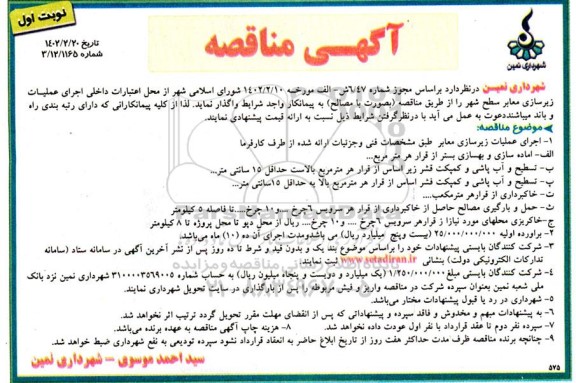 نوبت اول
شهرداری نمین
آگهی مناقصه
تاریخ ۱۴۰۲/۲/۲۰
شماره ۳/۱۲/۱۱۶۵
شهرداری نمین درنظردارد براساس مجوز شماره ۷/۴۷ش – الف مورخه ۱۴۰۲/۲/۱۰ شورای اسلامی شهر از محل اعتبارات داخلی اجرای عملیات
زیرسازی معابر سطح شهر را از طریق مناقصه (بصورت با مصالح) به پیمانکار واجد شرایط واگذار نماید. لذا از کلیه پیمانکارانی که دارای رتبه بندی راه
و باند میباشنددعوت به عمل می آید با درنظرگرفتن شرایط ذیل نسبت به ارائه قیمت پیشنهادی نمایند.
موضوع مناقصه:
۱- اجرای عملیات زیرسازی معابر طبق مشخصات فنی وجزئیات ارائه شده از طرف کارفرما
الف- اماده سازی و بهسازی بستر از قرار هر متر مربع...
ب- تسطیح و آب پاشی و کمپکت فشر زیر اساس از قرار هر مترمربع بالاست حداقل ۱۵ سانتی متر...
پ- تسطیح و آب پاشی و کمپکت فشر اساس از قرار هر مترمربع بالا به حداقل ۱۵سانتی متر...
ت- خاکبرداری از قرارهر مترمکعب....
ث- حمل و بارگیری مصالح حاصل از خاکبرداری از قرار هر سرویس ۶چرخ .... و۱۰ چرخ.... تا فاصله ۵ کیلومتر
ج-خاکریزی محلهای مورد نیازا ز قرارهر سرویس ۶چرخ .... و۱۰ چرخ.... ریال از محل دپو تا محل پروژه تا ۸ کیلومتر
۲- براورده اولیه ۲۵/۰۰۰/۰۰۰/۰۰۰ (بیست وپنج میلیارد ریال) می باشدومدت اجرای آن ده (۱۰) ماه می‌باشد.
۳- شرکت کنندگان بایستی پیشنهادات خود را براساس موضوع بند یک و بدون قید و شرط تا ده روز پس از نشر آخرین آگهی در سامانه ستاد (سامانه
تدارکات الکترونیکی دولت) بنشانی www.setadiran.ir ثبت نمایند.
۴- شرکت کنندگان بایستی مبلغ ۱/۲۵۰/۰۰۰/۰۰۰ (یک میلیارد و دویست و پنجاه میلیون ریال) به حساب شماره ۳۱۰۰۰۰۳۵۶۹۰۰۵ شهرداری نمین نزد بانک
ملی شعبه نمین بعنوان سپرده شرکت در مناقصه واریز و فیش مربوطه را پس از بارگذاری در سایت تحویل شهرداری نمایند.
۵- شهرداری در رد یا قبول پیشنهادات مختار می‌باشد.
۶- به پیشنهادات مبهم و مخدوش و فاقد سپرده و پیشنهاداتی که پس از انقضای مهلت مقرر تحویل گردد ترتیب اثر نخواهد شد.
۷- سپرده نفر دوم تا عقد قرارداد با نفر اول عودت داده نخواهد شد. ۸- هزینه چاپ آگهی مناقصه به عهده برنده می‌باشد.
۹- چنانچه برنده مناقصه ظرف مدت حداکثر هفت روز از تاریخ ابلاغ حاضر به انعقاد قرارداد نشود سپرده تودیعی به نفع شهرداری ضبط خواهد شد.
سید احمد موسوی – شهرداری نمین
۵۷۵